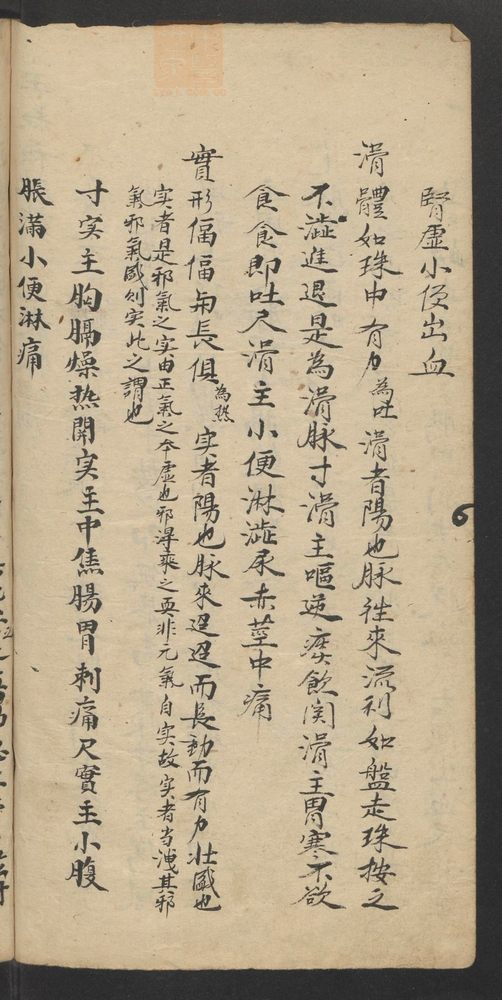 腎虛小便出血
滑體如珠中有力為吐滑者陽也脉往來流利如盤走珠按之
不澁進退是為滑脉寸滑主嘔逆痰飲関滑主胃寒不欲
食食即吐尺滑主小便淋澁尿赤莖中痛
實形偪偪与長俱為熱实者陽也脉來迢迢而長動而有力壮盛也
实者是邪氣之实由正氣之本虛也邪得乘之更非元氣自实故实者当洩其邪
氣邪氣盛則实此之謂也
寸实主胸膈燥热関实主中焦腸胃刺痛尺實主小腹
脹滿小便淋痛
6